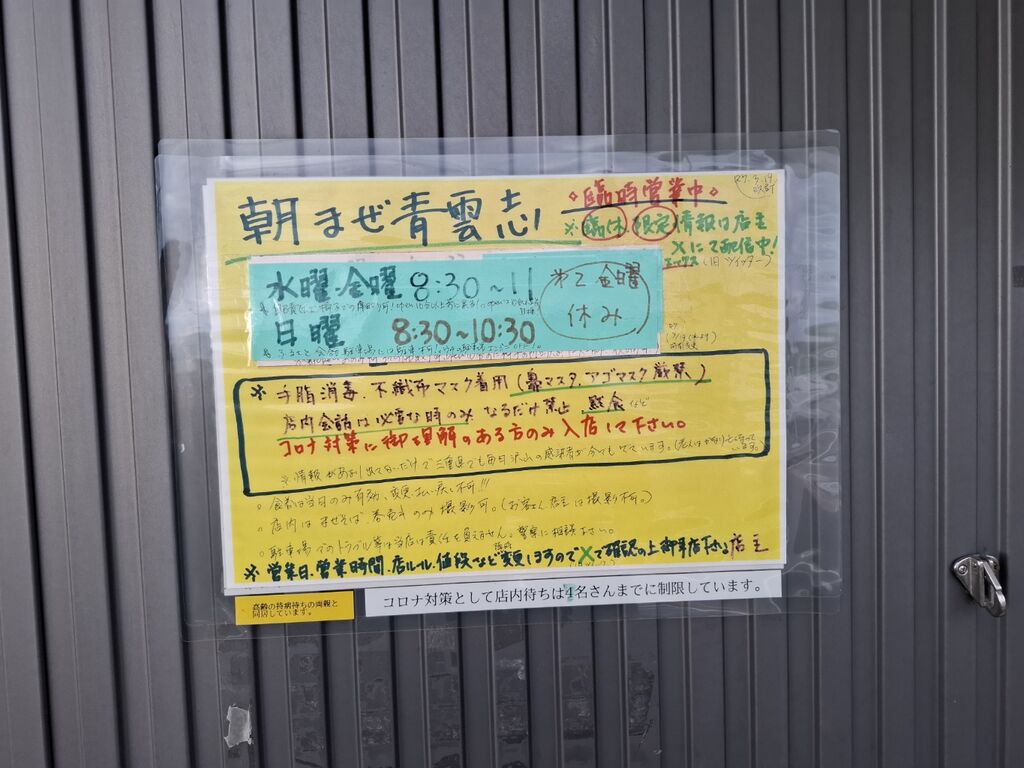 朝まぜ青雲志
臨時営業中
R7.3.19
※臨休 限定情報は店主
Xにて配信中!
エックス(旧ツイッター)
水曜・金曜 8:30~11
第2金曜
休み
日曜 8:30~10:30
※手脂消毒.不織布マスク着用(鼻マスク.アゴマスク厳禁)
店内会話は必要な時のみ なるだけ禁止 黙食など
コロナ対策に御理解のある方のみ入店して下さい。
で三重県でも毎日沢山の感染者が今でもでています。
○食券は当日のみ有効、変更、払い戻し不可!!!
○店内はまぜそば 券売キのみ撮影可。(お客さん店主は撮影不可。)
○駐車場でのトラブル等は当店は責任を負えません。警察に相談下さい。
※営業日.営業時間.店ルール.値段など変更しますのでXで確認の上御来店下さい 店主
高齢の持病待ちの両親と
同居しています。
コロナ対策として店内待ちは4名さんまでに制限しています。